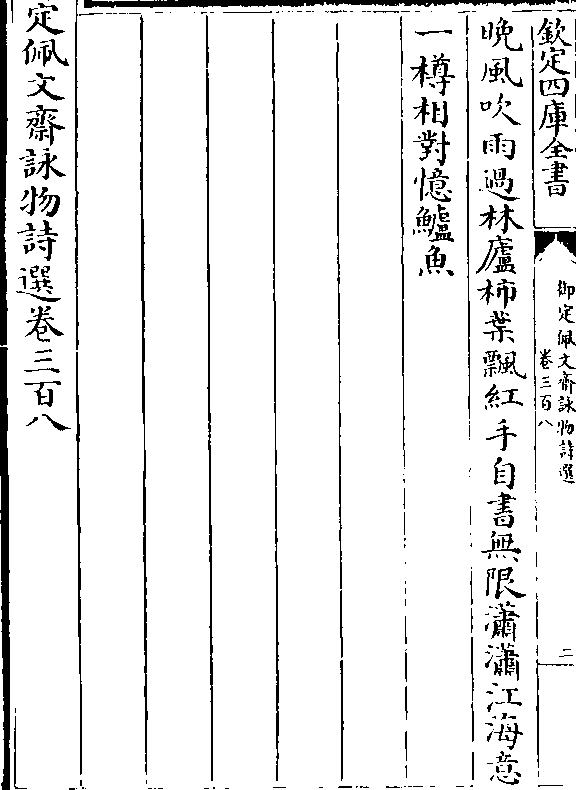 欽定四庫全書
御定佩文齋詠物詩選
卷三百八
二
晚風吹雨過林廬柿葉飄紅手自書無限瀟瀟江海意
一樽相對憶鱸魚
定佩文齋詠物詩選卷三百八